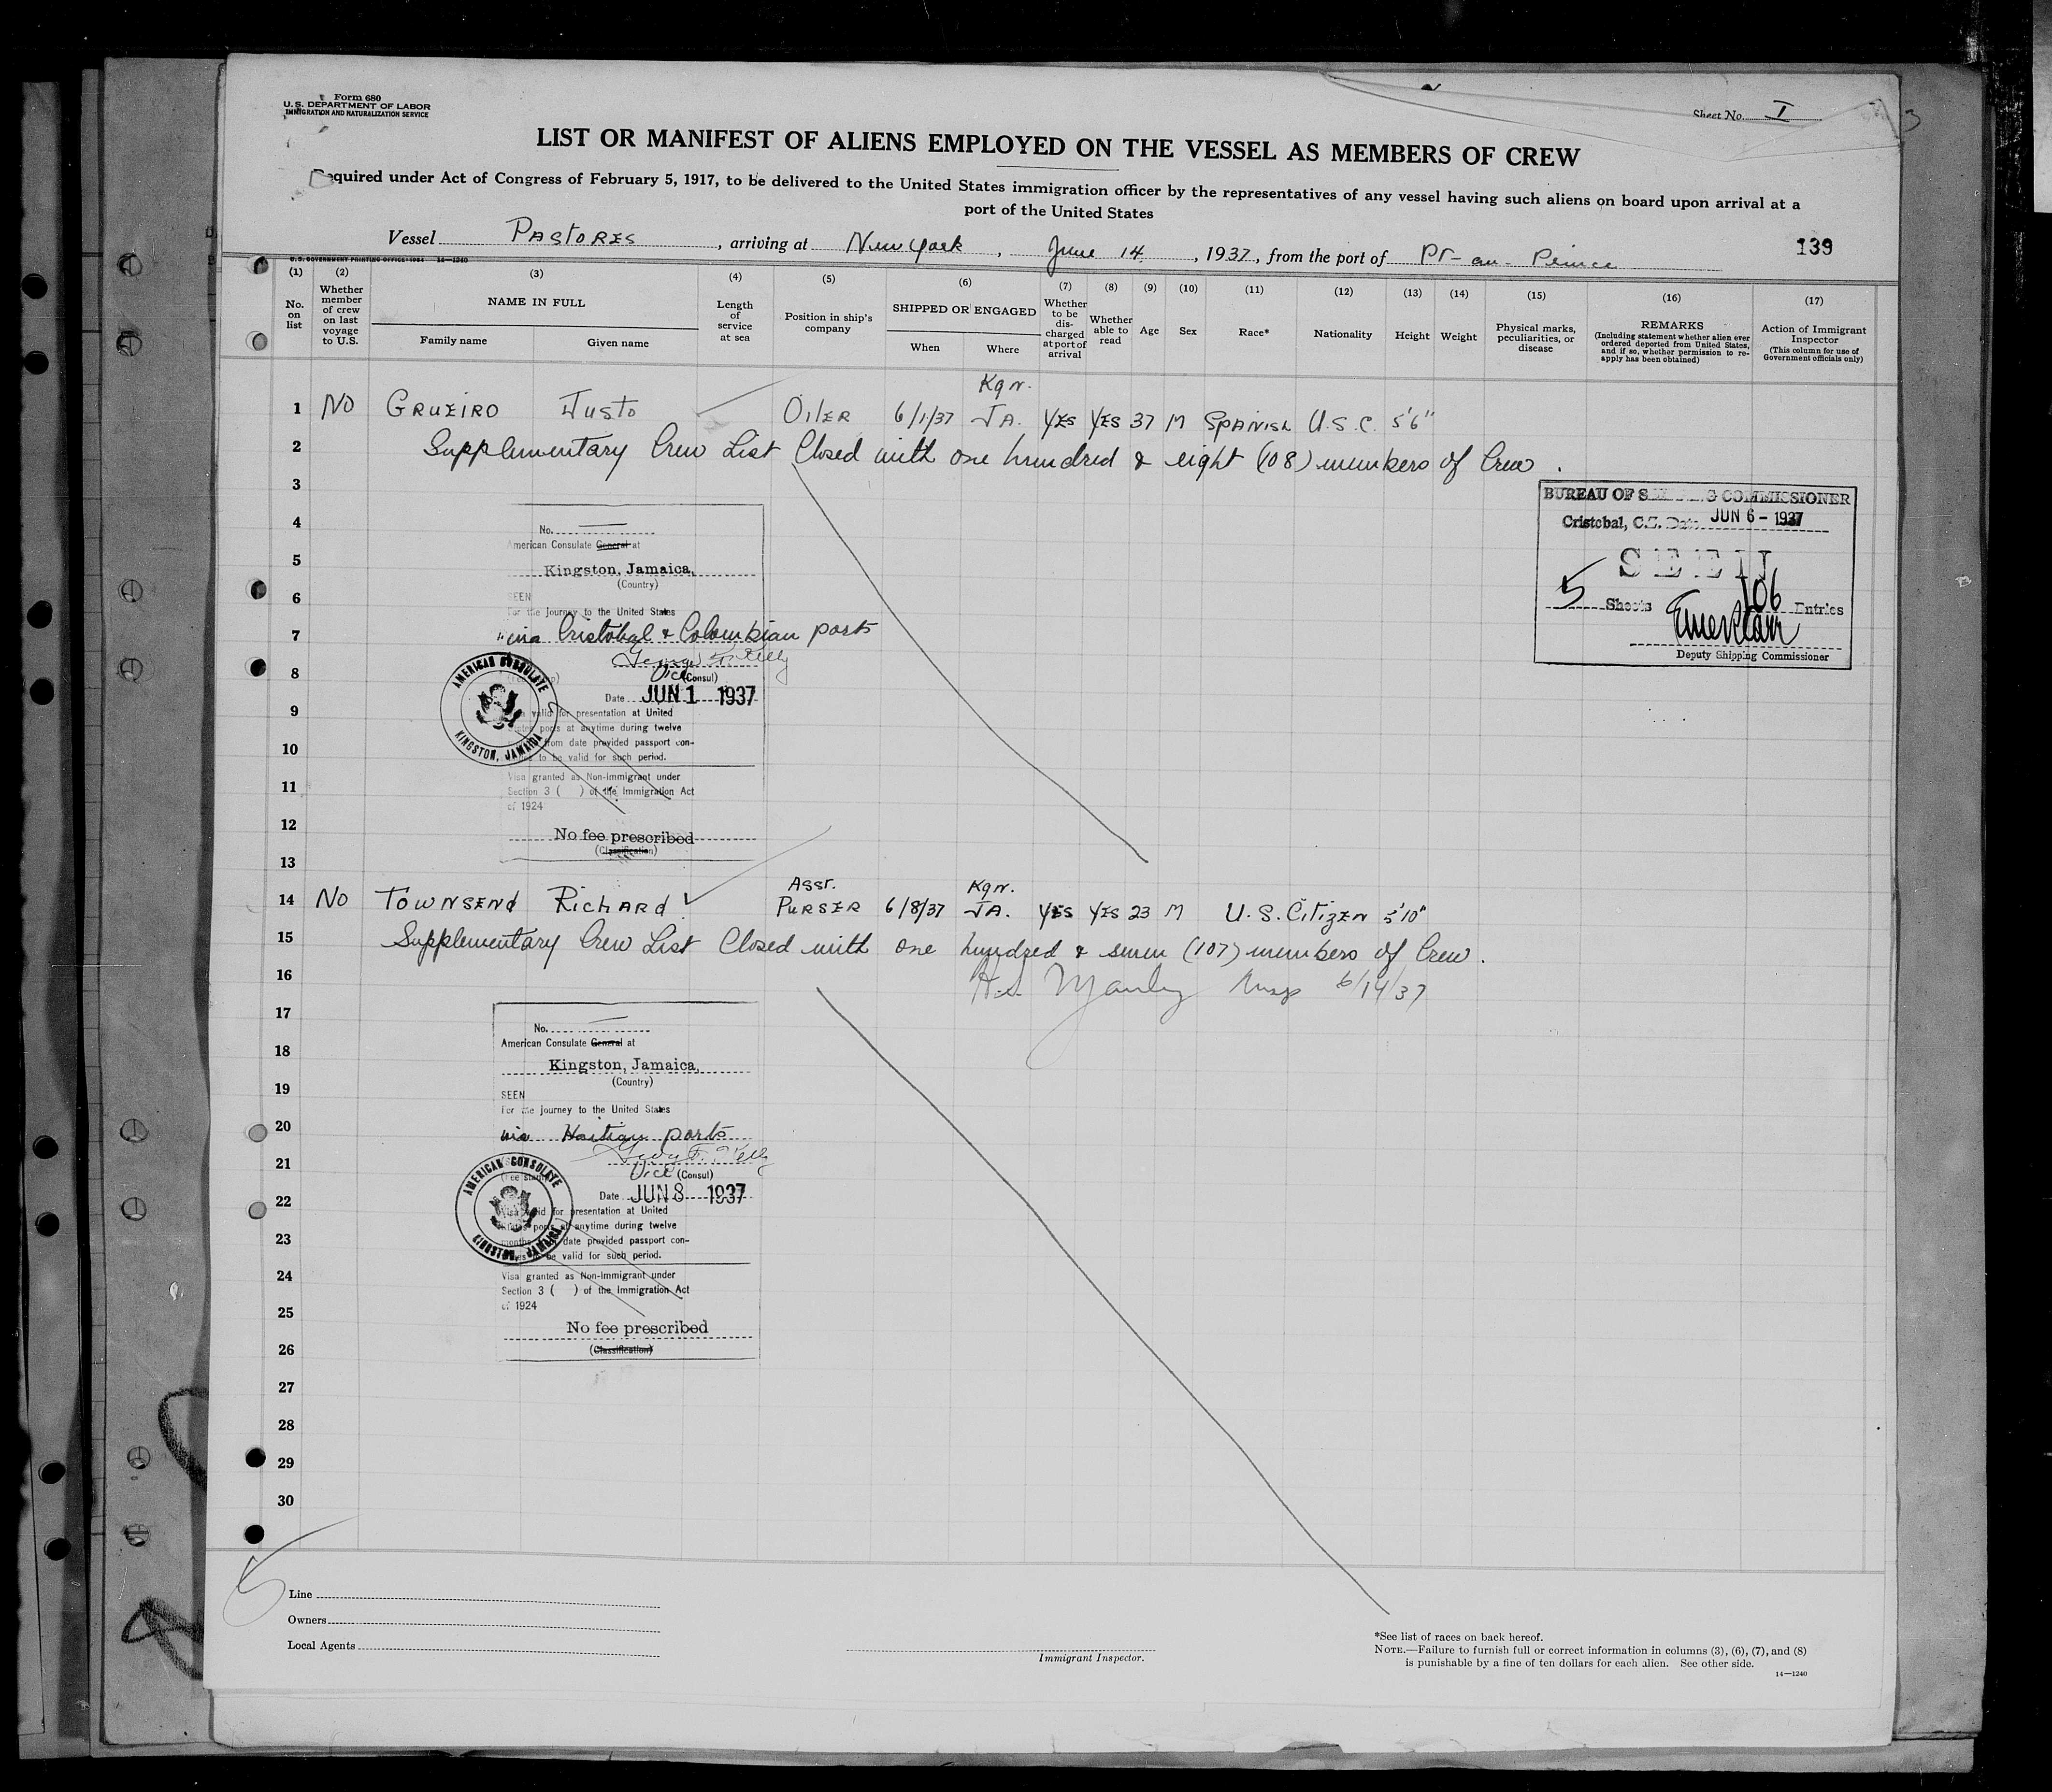 Form 680
U. S. DEPARTMENT OF LABOR
IMMIGRATION AND NATURALIZATION SERVICE
Sheet No. I
3
LIST OR MANIFEST OF ALIENS EMPLOYED ON THE VESSEL AS MEMBERS OF CREW
Required under Act of Congress of February 5, 1917, to be delivered to the United States immigration officer by the representatives of any vessel having such aliens on board upon arrival at a
port of the United States
Vessel PASTORES, arriving at New York, June 14, 1937, from the port of Pt-au-Prince
139
U. S. GOVERNMENT PRINTING OFFICE: 1934 14—1240
(1) (2) (3) (4) (5) (6) (7) (8) (9) (10) (11) (12) (13) (14) (15) (16) (17)
No. on list
Whether member of crew on last voyage to U.S.
NAME IN FULL
Family name Given name
Length of service at sea
Position in ship's company
SHIPPED OR ENGAGED
When Where
Whether to be discharged at port of arrival
Whether able to read
Age
Sex
Race*
Nationality
Height
Weight
Physical marks, peculiarities, or disease
REMARKS
(Including statement whether alien ever ordered deported from United States, and if so, whether permission to re-apply has been obtained)
Action of Immigrant Inspector
(This column for use of Government officials only)
Kgn.
1 NO GRUEIRO JUSTO OILER 6/1/37 JA. YES YES 37 M SPANISH U.S.C. 5'6"
2 Supplementary Crew List Closed with one hundred & eight (108) members of Crew.
3
4
5
6
7
8
9
10
11
12
13
No.
American Consulate General at
Kingston, Jamaica,
(Country)
SEEN
For the journey to the United States
via Cristobal & Colombian ports
George F. Kelly
Vice (Consul)
Date JUN 1 1937
valid for presentation at United
States ports at anytime during twelve
from date provided passport con-
to be valid for such period.
Visa granted as Non-Immigrant under
Section 3 ( ) of the Immigration Act
of 1924
No fee prescribed
(Classification)
AMERICAN CONSULATE
KINGSTON, JAMAICA
BUREAU OF COMMISSIONER
Cristobal, C.Z. Date JUN 6 - 1937
SEEN
5 Sheets 106 Entries
Deputy Shipping Commissioner
Asst. Kgn.
14 NO TOWNSEND RICHARD PURSER 6/8/37 JA. YES YES 23 M U.S. CITIZEN 5'10"
15 Supplementary Crew List Closed with one hundred & seven (107) members of Crew.
16 Manley Insp 6/14/37
17
18
19
20
21
22
23
24
25
26
27
28
29
30
No.
American Consulate General at
Kingston, Jamaica,
(Country)
SEEN
For the journey to the United States
via Haitian ports
George F. Kelly
Vice (Consul)
(Fee stamp)
Date JUN 8 1937
Visa valid for presentation at United
States ports at anytime during twelve
months date provided passport con-
be valid for such period.
Visa granted as Non-Immigrant under
Section 3 ( ) of the Immigration Act
of 1924
No fee prescribed
(Classification)
AMERICAN CONSULATE
KINGSTON, JAMAICA
Line
Owners
Local Agents
Immigrant Inspector.
*See list of races on back hereof.
NOTE.—Failure to furnish full or correct information in columns (3), (6), (7), and (8)
is punishable by a fine of ten dollars for each alien. See other side.
14—1240